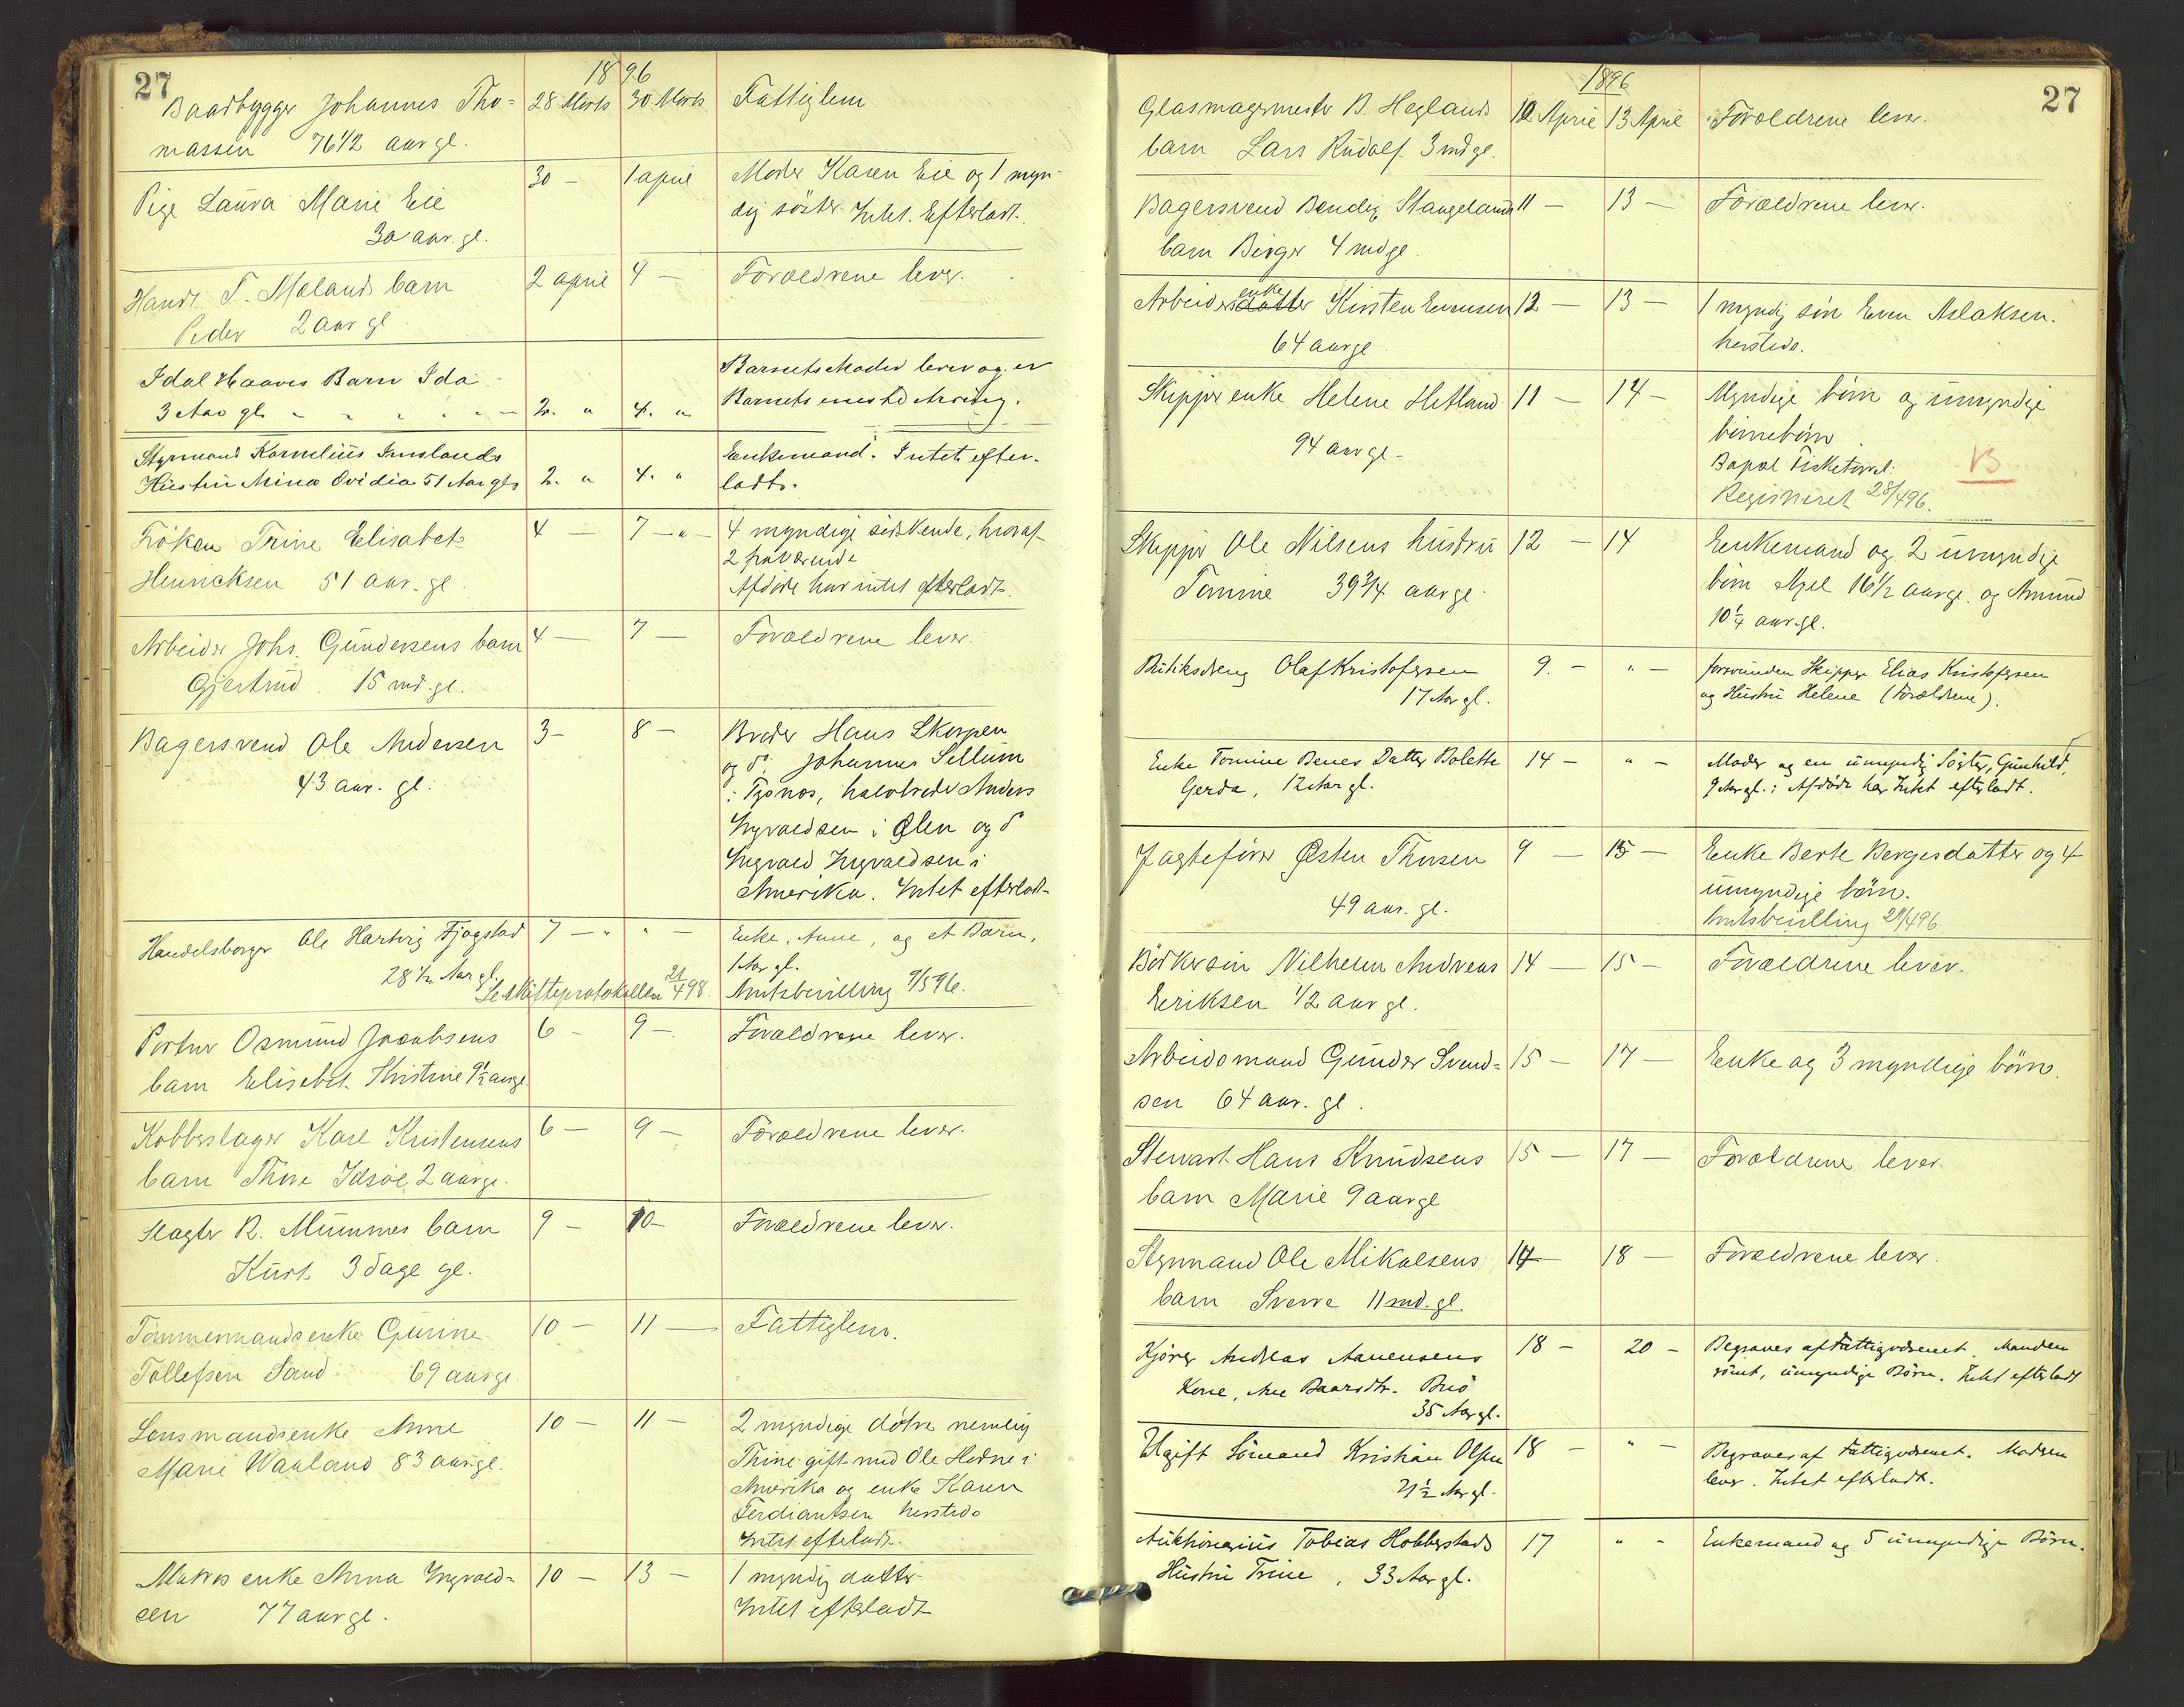 27
1896
Baadbygger Johannes Tho= 28 Marts 30 Marts Fattiglem
massen 76 1/2 aar gl.
Pige Laura Marie Eie 30 — 1 april Moder Karen Eie og 1 myn-
30 aar. gl. dig söster Intet Efterladt.
Handl. T. Molands barn 2 april 4 — Forældrene lever.
Peder 2 aar gl
Idal Haaves Barn Ida Barnets Moder lever og er
3 Aar gl. 2. " 4. " Barnets eneste Arving.
Styrmand Kornelius Imslands Enkemand. Intet efter-
Hustru Mina Ovidia 51 Aar gl. 2. " 4. " ladt.
Fröken Trine Elisabet 4 — 7 — " — 4 myndige södskende, hvoraf
Henricksen 51 aar. gl. 2 fraværende
Afdöde har intet efterladt.
Arbeider Johs. Gundersens barn 4 — 7 — Forældrene lever.
Gjertrud 15 md. gl.
Bagersvend Ole Andersen 3 — 8 — Broder Hans Skorpen
43 aar. gl. og do. Johannes Sellum
i Tysnos, halvbroder Anders
Ingvaldsen i Ølen og do
Ingvald Ingvaldsen i
Amerika. Intet efterladt
Handelsborger Ole Hartvig Fjogstad 7 — " " — Enke, Anne, og et Barn,
28 1/2 Aar gl. 1 Aar gl.
Se skifteprotokollen 21/4 98. Amtsbevilling 9/5 96.
Portner Osmund Jacobsens 6 — 9 — Forældrene lever.
barn Elisabet Kristine 9 1/2 aar gl.
Kobberslager Karl Kristensens 6 — 9 — Forældrene lever.
barn Thore Idsöe 2 aar gl.
Slagter R. Mummes barn 9 — 10 — Forældrene lever.
Kurt 3 dage gl.
Tömmermandsenke Gurine 10 — 11 — Fattiglem.
Tollefsen Sand 69 aar gl
Lensmandsenke Anne 10 — 11 — 2 myndige dötre nemlig
Marie Waaland 83 aar gl. Thine gift med Ole Hedne i
Amerika og enke Karen
Ferdiantsen hersteds
Intet efterladt.
Matros enke Anna Ingvald= 10 — 13 — 1 myndig datter
sen 77 aar gl. Intet efterladt
27
1896
Glasmagermester B. Heglands 10 April 13 April Forældrene lever.
barn Lars Rudolf 3 md gl.
Bagersvend Bendig Stangelands 11 — 13 — Forældrene lever.
barn Birger 4 md gl.
enke
Arbeidersdatter Kirsten Evensen 12 — 13 — 1 myndig sön Even Aslaksen.
64 aar gl hersteds.
Skipper enke Helene Hetland 11 — 14 — Myndige börn og umyndige
94 aar gl. börnebörn.
Registreret 28/4 96.
Skipper Ole Nilsens hustru 12 — 14 Enkemand og 2 umyndige
Tomine 39 3/4 aar gl. börn Axel 16 1/2 aar gl. og Amund
10 1/4 aar gl.
Butiksdreng Olaf Kristofersen 9. — " — forsvunden Skipper Elias Kristofersen
17 Aar gl. og Hustru Helene (Forældrene).
Enke Tomine Benes Datter Bolette 14 — " — Moder og en umyndig Söster, Gunhild,
Gerda, 12 Aar gl. 9 Aar gl.: Afdöde har Intet efterladt.
Jagtefører Østen Thosen 9 — 15 — Enke Berte Bergesdatter og 4
49 aar. gl. umyndige börn.
Amtsbevilling 29/4 96.
Bödkersön Vilhelm Andreas 14 — 15 — Forældrene lever.
Eriksen 1/2 aar gl.
Arbeidsmand Gunder Svend= 15 — 17 — Enke og 3 myndige börn.
sen 64 aar. gl.
Stewart Hans Knudsens 15 — 17 — Forældrene lever
barn Marie 9 aar gl
Styrmand Ole Mikalsens 14 — 18 — Forældrene lever.
barn Sverre 11 md. gl.
Kjører Andreas Aanensens 18 — 20 — Begraves af Fattigvæsenet. Manden
Kone, Ane Baardsdtr. Brö römt, umyndige Börn. Intet efterladt
35 Aar gl.
Ugift Sömand Kristian Olsen 18 — " — Begraves af Fattigvæsenet. Modern
21 1/2 Aar gl. lever. Intet efterladt.
Auktionarius Tobias Hobberstads 17 " — Enkemand og 5 umyndige Börn.
Hustru Trine, 33 Aar gl.